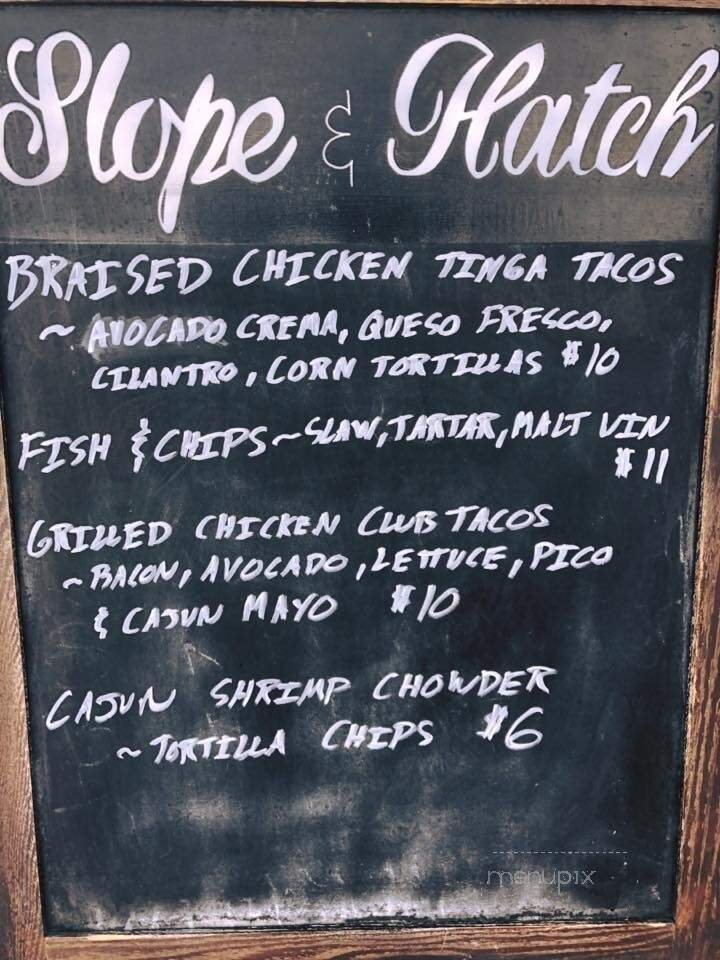 Slope & Hatch
BRAISED CHICKEN TINGA TACOS
~ AVOCADO CREMA, QUESO FRESCO,
CILANTRO, CORN TORTILLAS $10
FISH & CHIPS ~ SLAW, TARTAR, MALT VIN
$11
GRILLED CHICKEN CLUB TACOS
~ BACON, AVOCADO, LETTUCE, PICO
& CAJUN MAYO $10
CAJUN SHRIMP CHOWDER
~ TORTILLA CHIPS $6
menupix